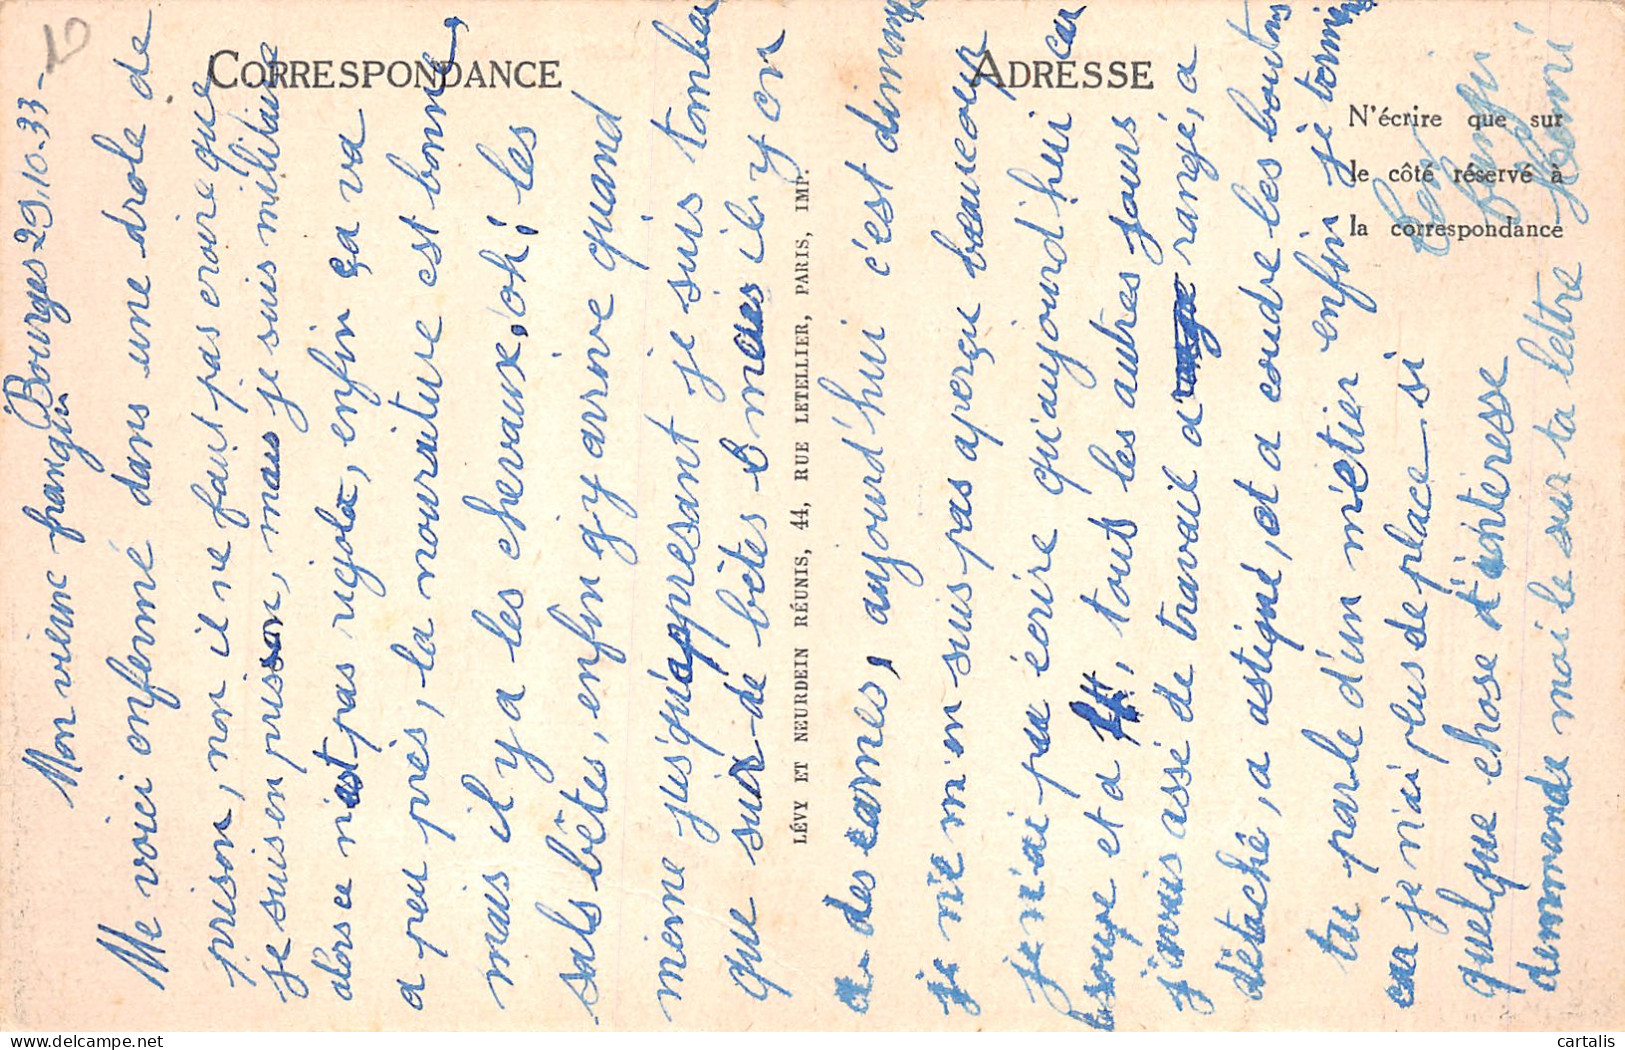 10
CORRESPONDANCE
ADRESSE
N'écrire que sur
le côté réservé à
la correspondance
LÉVY ET NEURDEIN RÉUNIS, 44, RUE LETELLIER, PARIS, IMP.
Bourges 29.10.33-
Mon vieux frangin
Me voici enfermé dans une drole de
prison, non il ne faut pas croire que
je suis en prison, mais je suis militaire
alors ce n'est pas rigola, enfin ça va
a peu près, la nourriture est bonne,
mais il y a les chevaux, oh! les
sals bêtes, enfin g'y arrive quand
mieme jusqu'apresant je suis tomber
que sur de bêtes mais il y en
a des carnes, aujourd'hui c'est dimanche
je ne m'en suis pas aperçu beaucoup
je n'ai pu écrire qu'aujourd'hui car
la soupe et a 4H, tous les autres jours
j'avais assé de travail a rangé, a
détaché, a astiqué, et a coudre les boutons
tu parle d'un métier enfin je termine
car je n'ai plus de place si
quelque chose t'interesse
demmande moi le sur ta lettre
Ton
frangin
Henri
cartalis
© cartalis-delcampe.net